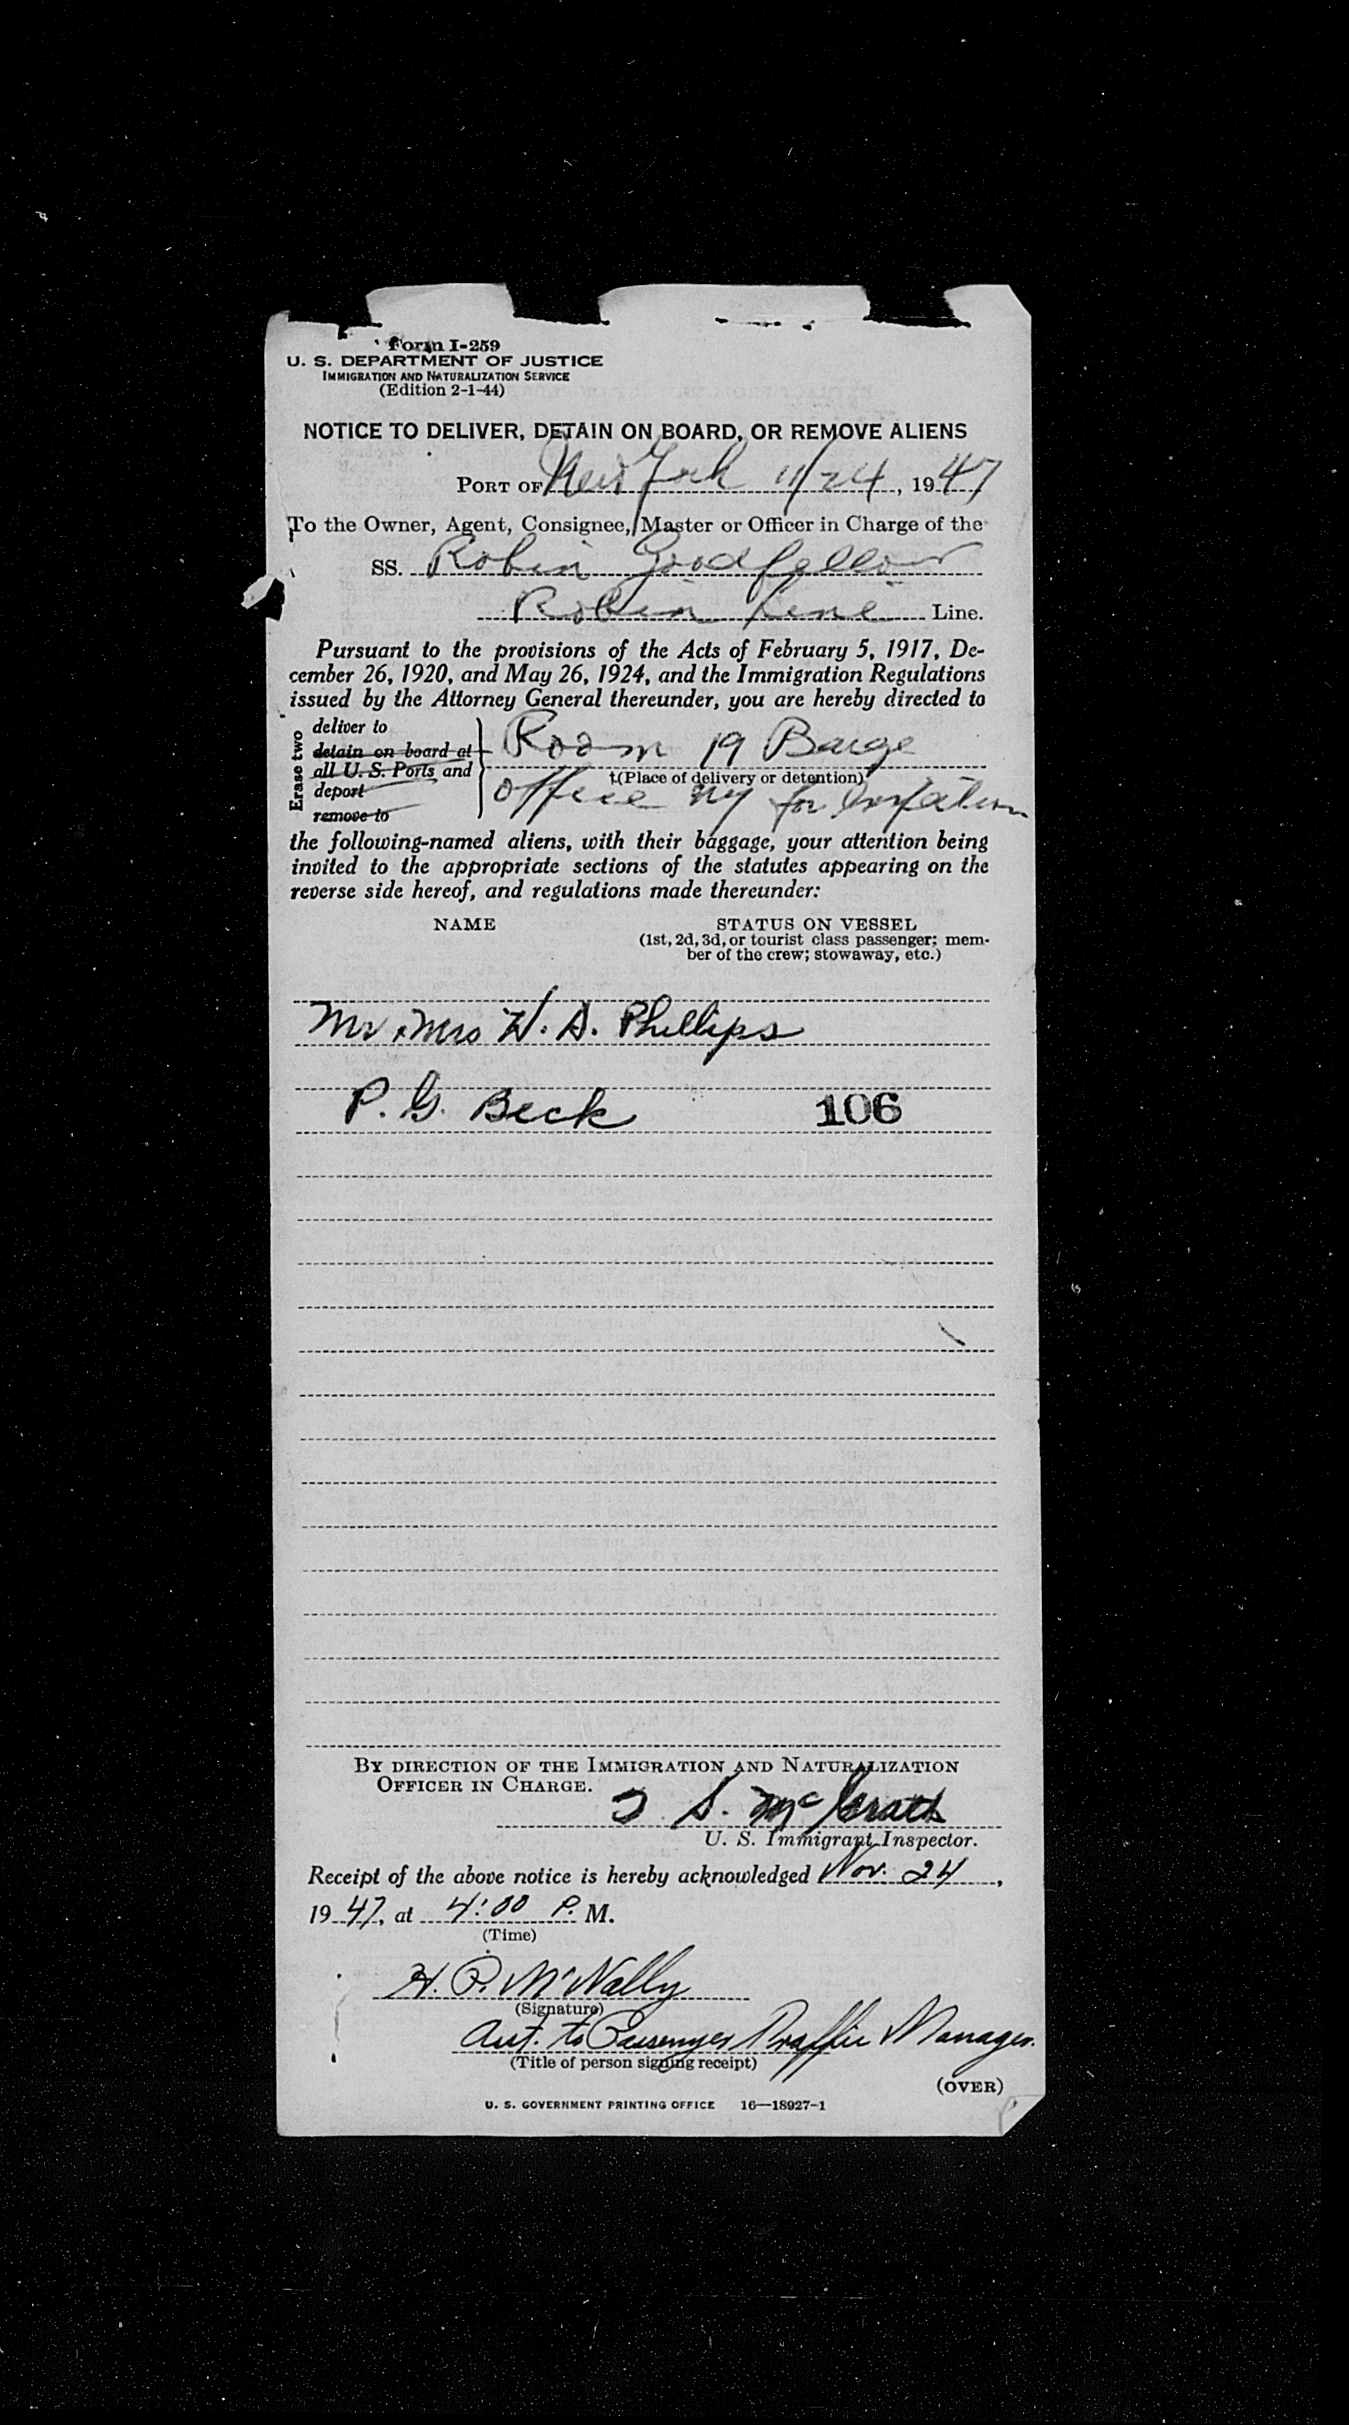 Form I-259
U. S. DEPARTMENT OF JUSTICE
IMMIGRATION AND NATURALIZATION SERVICE
(Edition 2-1-44)
NOTICE TO DELIVER, DETAIN ON BOARD, OR REMOVE ALIENS
PORT OF New York 11/24, 1947
To the Owner, Agent, Consignee, Master or Officer in Charge of the
SS. Robin Goodfellow
Robin Line Line.
Pursuant to the provisions of the Acts of February 5, 1917, De-
cember 26, 1920, and May 26, 1924, and the Immigration Regulations
issued by the Attorney General thereunder, you are hereby directed to
Erase two
deliver to
detain on board at
all U. S. Ports and
deport
remove to
Room 19 Barge
†(Place of delivery or detention)
office NY for
the following-named aliens, with their baggage, your attention being
invited to the appropriate sections of the statutes appearing on the
reverse side hereof, and regulations made thereunder:
NAME STATUS ON VESSEL
(1st, 2d, 3d, or tourist class passenger; mem-
ber of the crew; stowaway, etc.)
Mr + Mrs W. A. Phillips
P. G. Beck 106
BY DIRECTION OF THE IMMIGRATION AND NATURALIZATION
OFFICER IN CHARGE.
S. McGrath
U. S. Immigrant Inspector.
Receipt of the above notice is hereby acknowledged Nov. 24,
1947, at 4:00 P. M.
(Time)
H. P. McNally
(Signature)
Asst. to Passenger Traffic Manager.
(Title of person signing receipt)
(OVER)
U. S. GOVERNMENT PRINTING OFFICE 16—18927-1